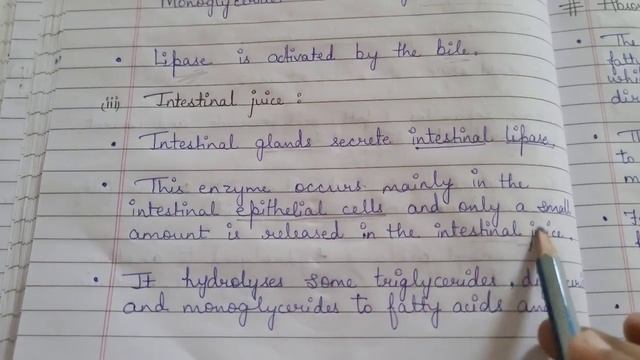 Monoglyceride
• Lipase is activated by the bile.
(iii) Intestinal juice :
• Intestinal glands secrete intestinal lipase.
• This enzyme occurs mainly in the
intestinal epithelial cells and only a small
amount is released in the intestinal juice.
• It hydrolyses some triglycerides,
and monoglycerides to fatty acids and
#
• The
fatt
whi
dir
• T
to
m